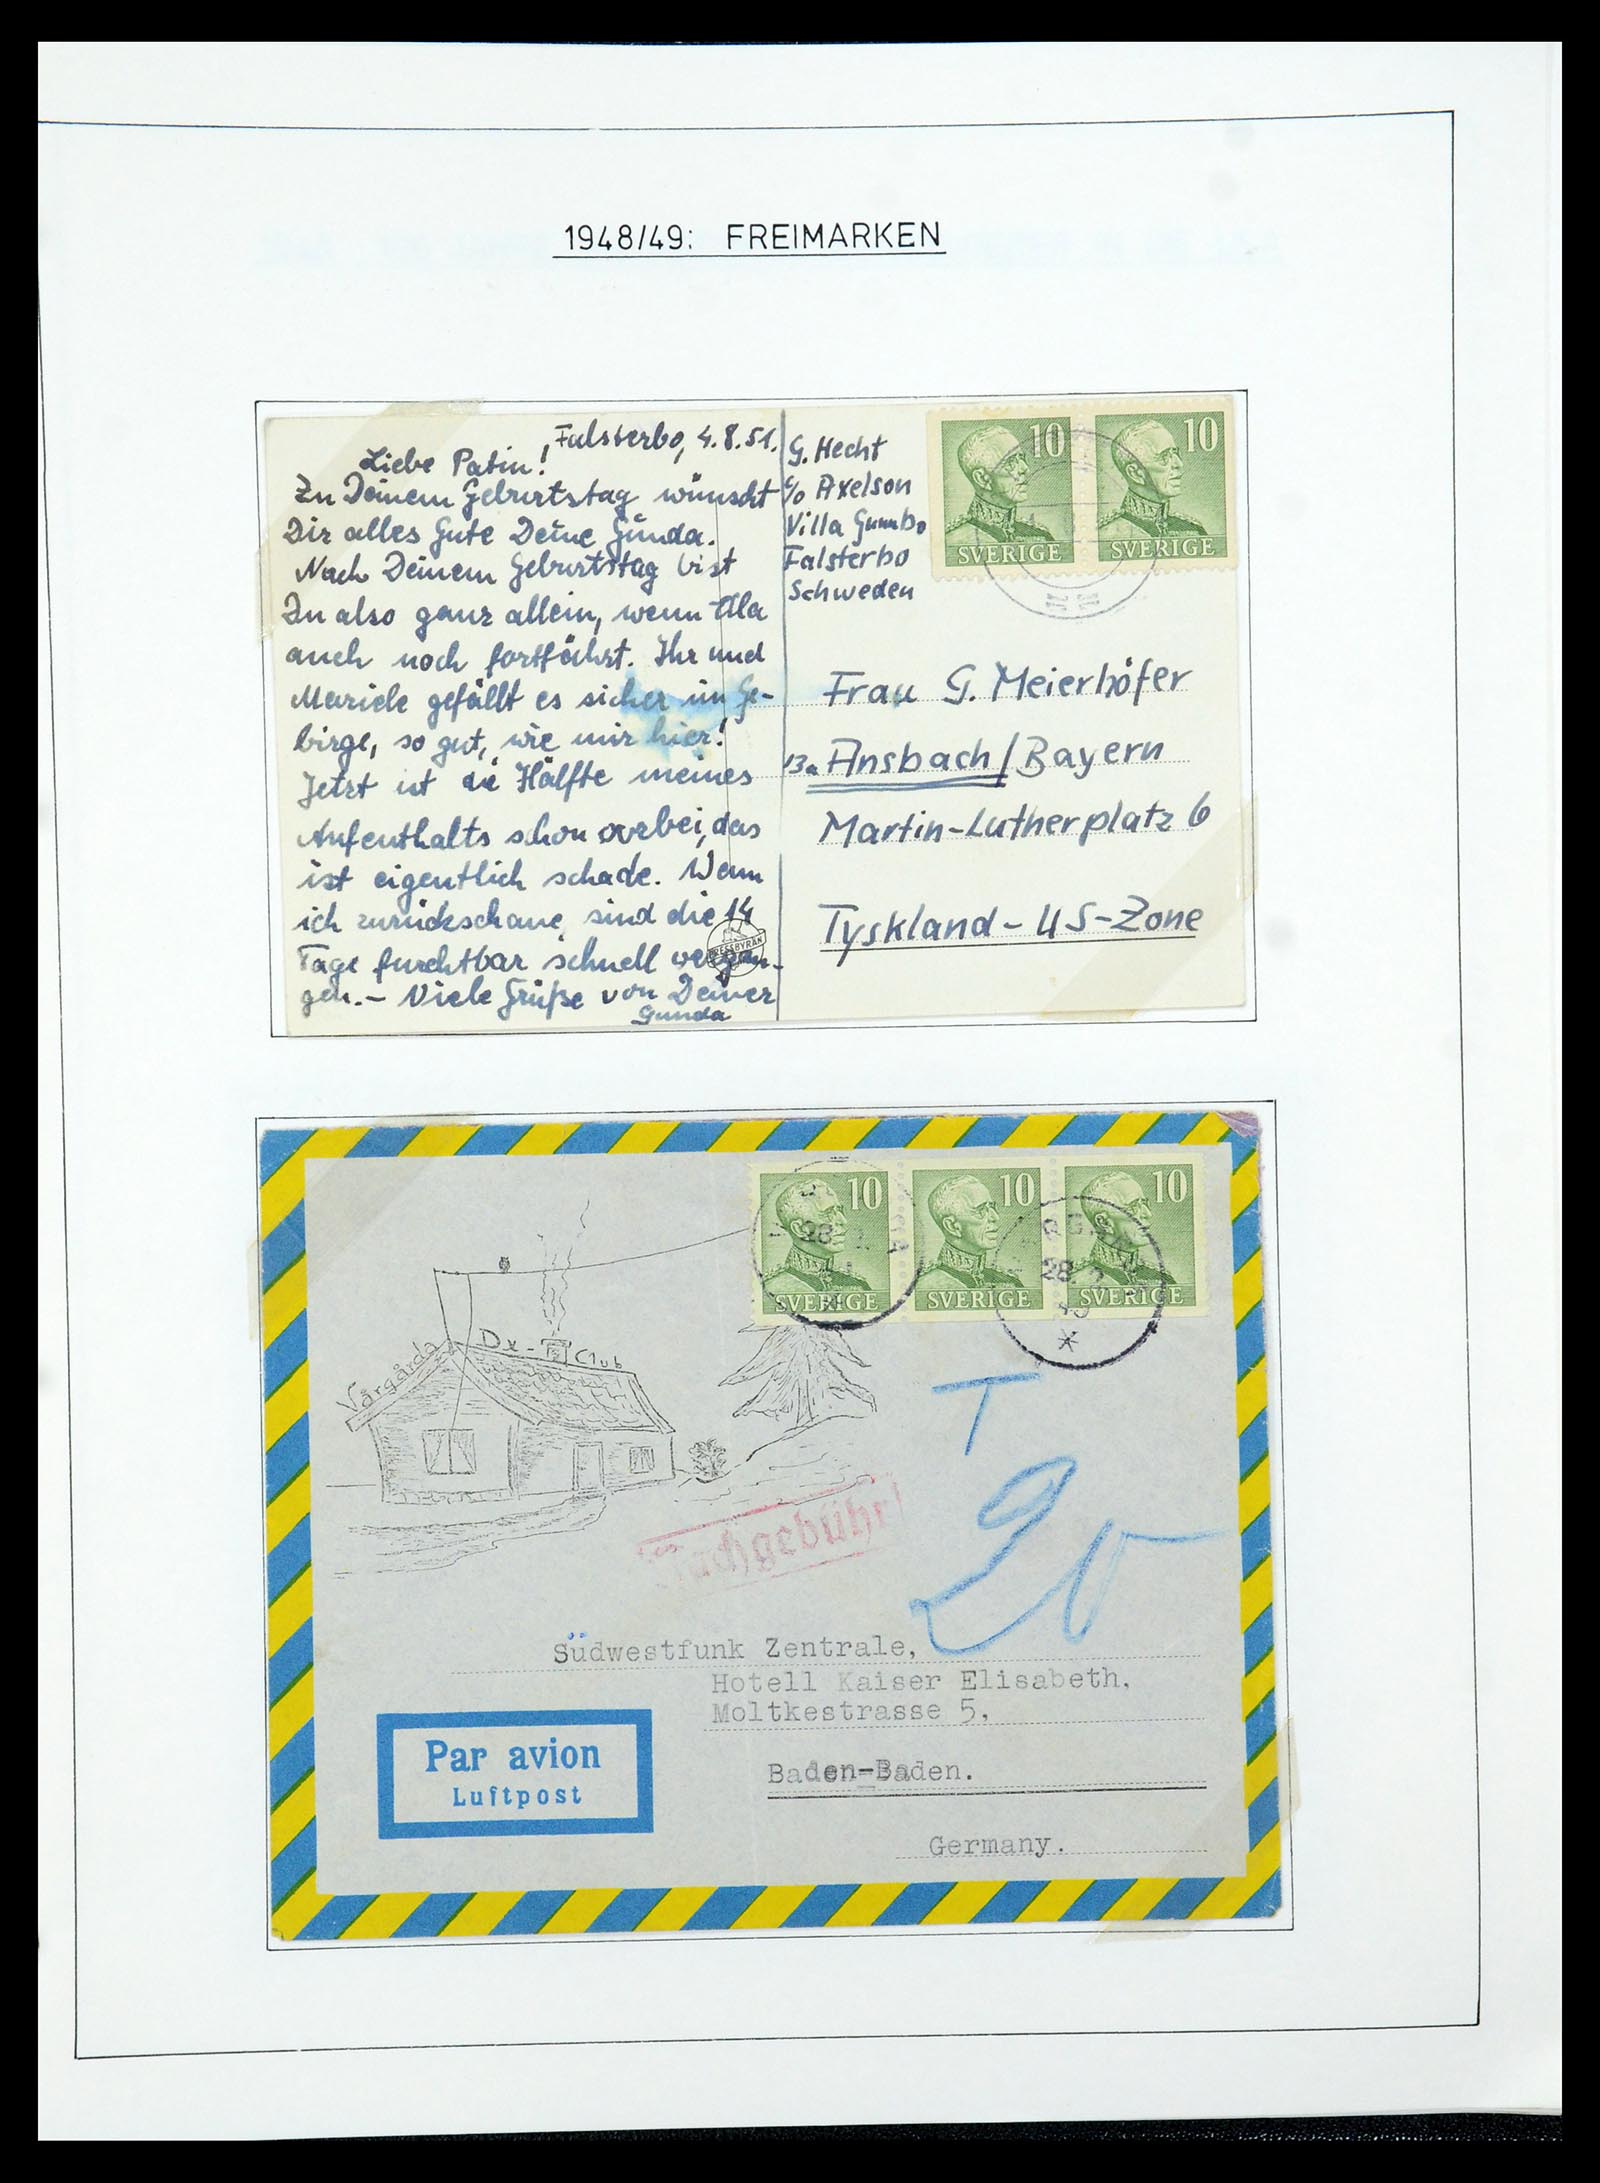 1948/49: FREIMARKEN
Falsterbo, 4.8.51.
Liebe Patin!
Zu Deinem Geburtstag wünscht
Dir alles Gute Deine Gunda.
Nach Deinem Geburtstag bist
Du also ganz allein, wenn Ella
auch noch fortfährt. Ihr und
Mariele gefällt es sicher im Ge-
birge, so gut, wie mir hier!
Jetzt ist die Hälfte meines
Aufenthalts schon vorbei, das
ist eigentlich schade. Wenn
ich zurückschaue, sind die 14
Tage furchtbar schnell vergan-
gen. – Viele Grüße von Deiner
Gunda
PRESSBYRÅN
G. Hecht
c/o Axelson
Villa Gunnbo
Falsterbo
Schweden
10
SVERIGE
10
SVERIGE
Frau G. Meierhöfer
13a Ansbach/Bayern
Martin-Lutherplatz 6
Tyskland - US-Zone
10
SVERIGE
10
SVERIGE
10
SVERIGE
28
28. 2
49
Vårgårda Dx-Club
T
20
Nachgebühr
Südwestfunk Zentrale,
Hotell Kaiser Elisabeth,
Moltkestrasse 5,
Baden-Baden.
Germany.
Par avion
Luftpost